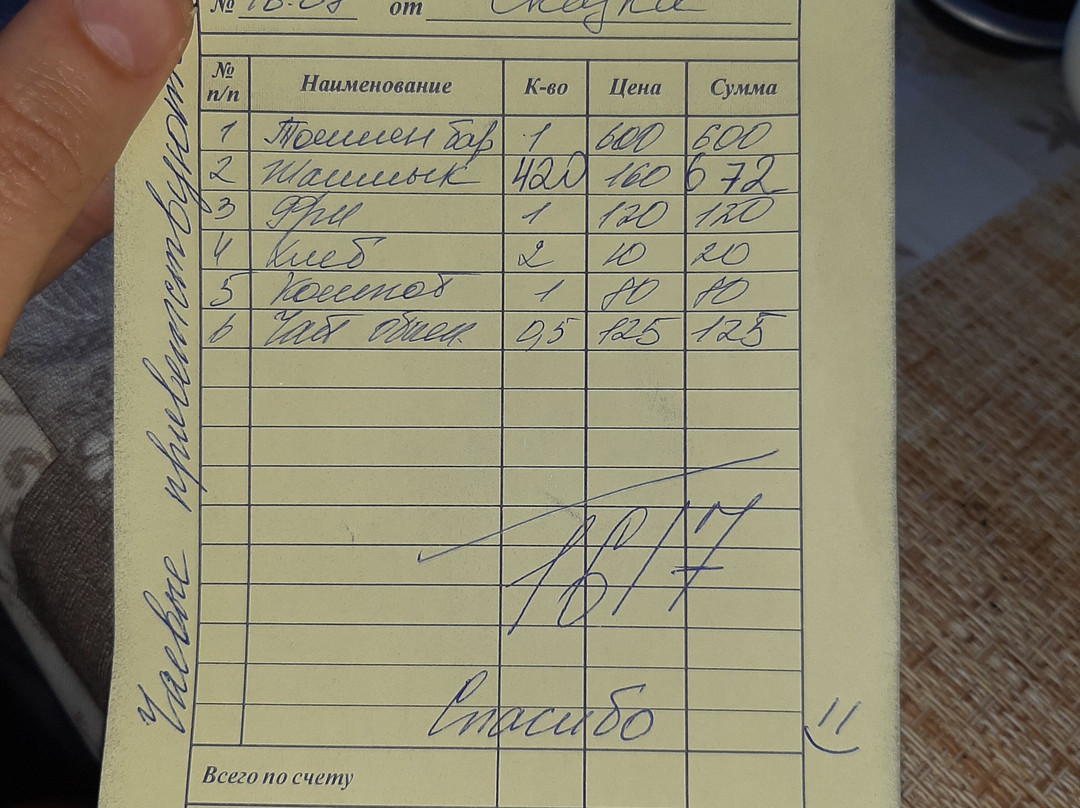 № 18.09 от Сказка
№ п/п Наименование К-во Цена Сумма
1 1 600 600
2 Шашлык 420 160 672
3 Фри 1 120 120
4 Хлеб 2 10 20
5 Компот 1 80 80
6 Чай 0,5 125 125
1617
Спасибо
Всего по счету
Чаевые приветствуют